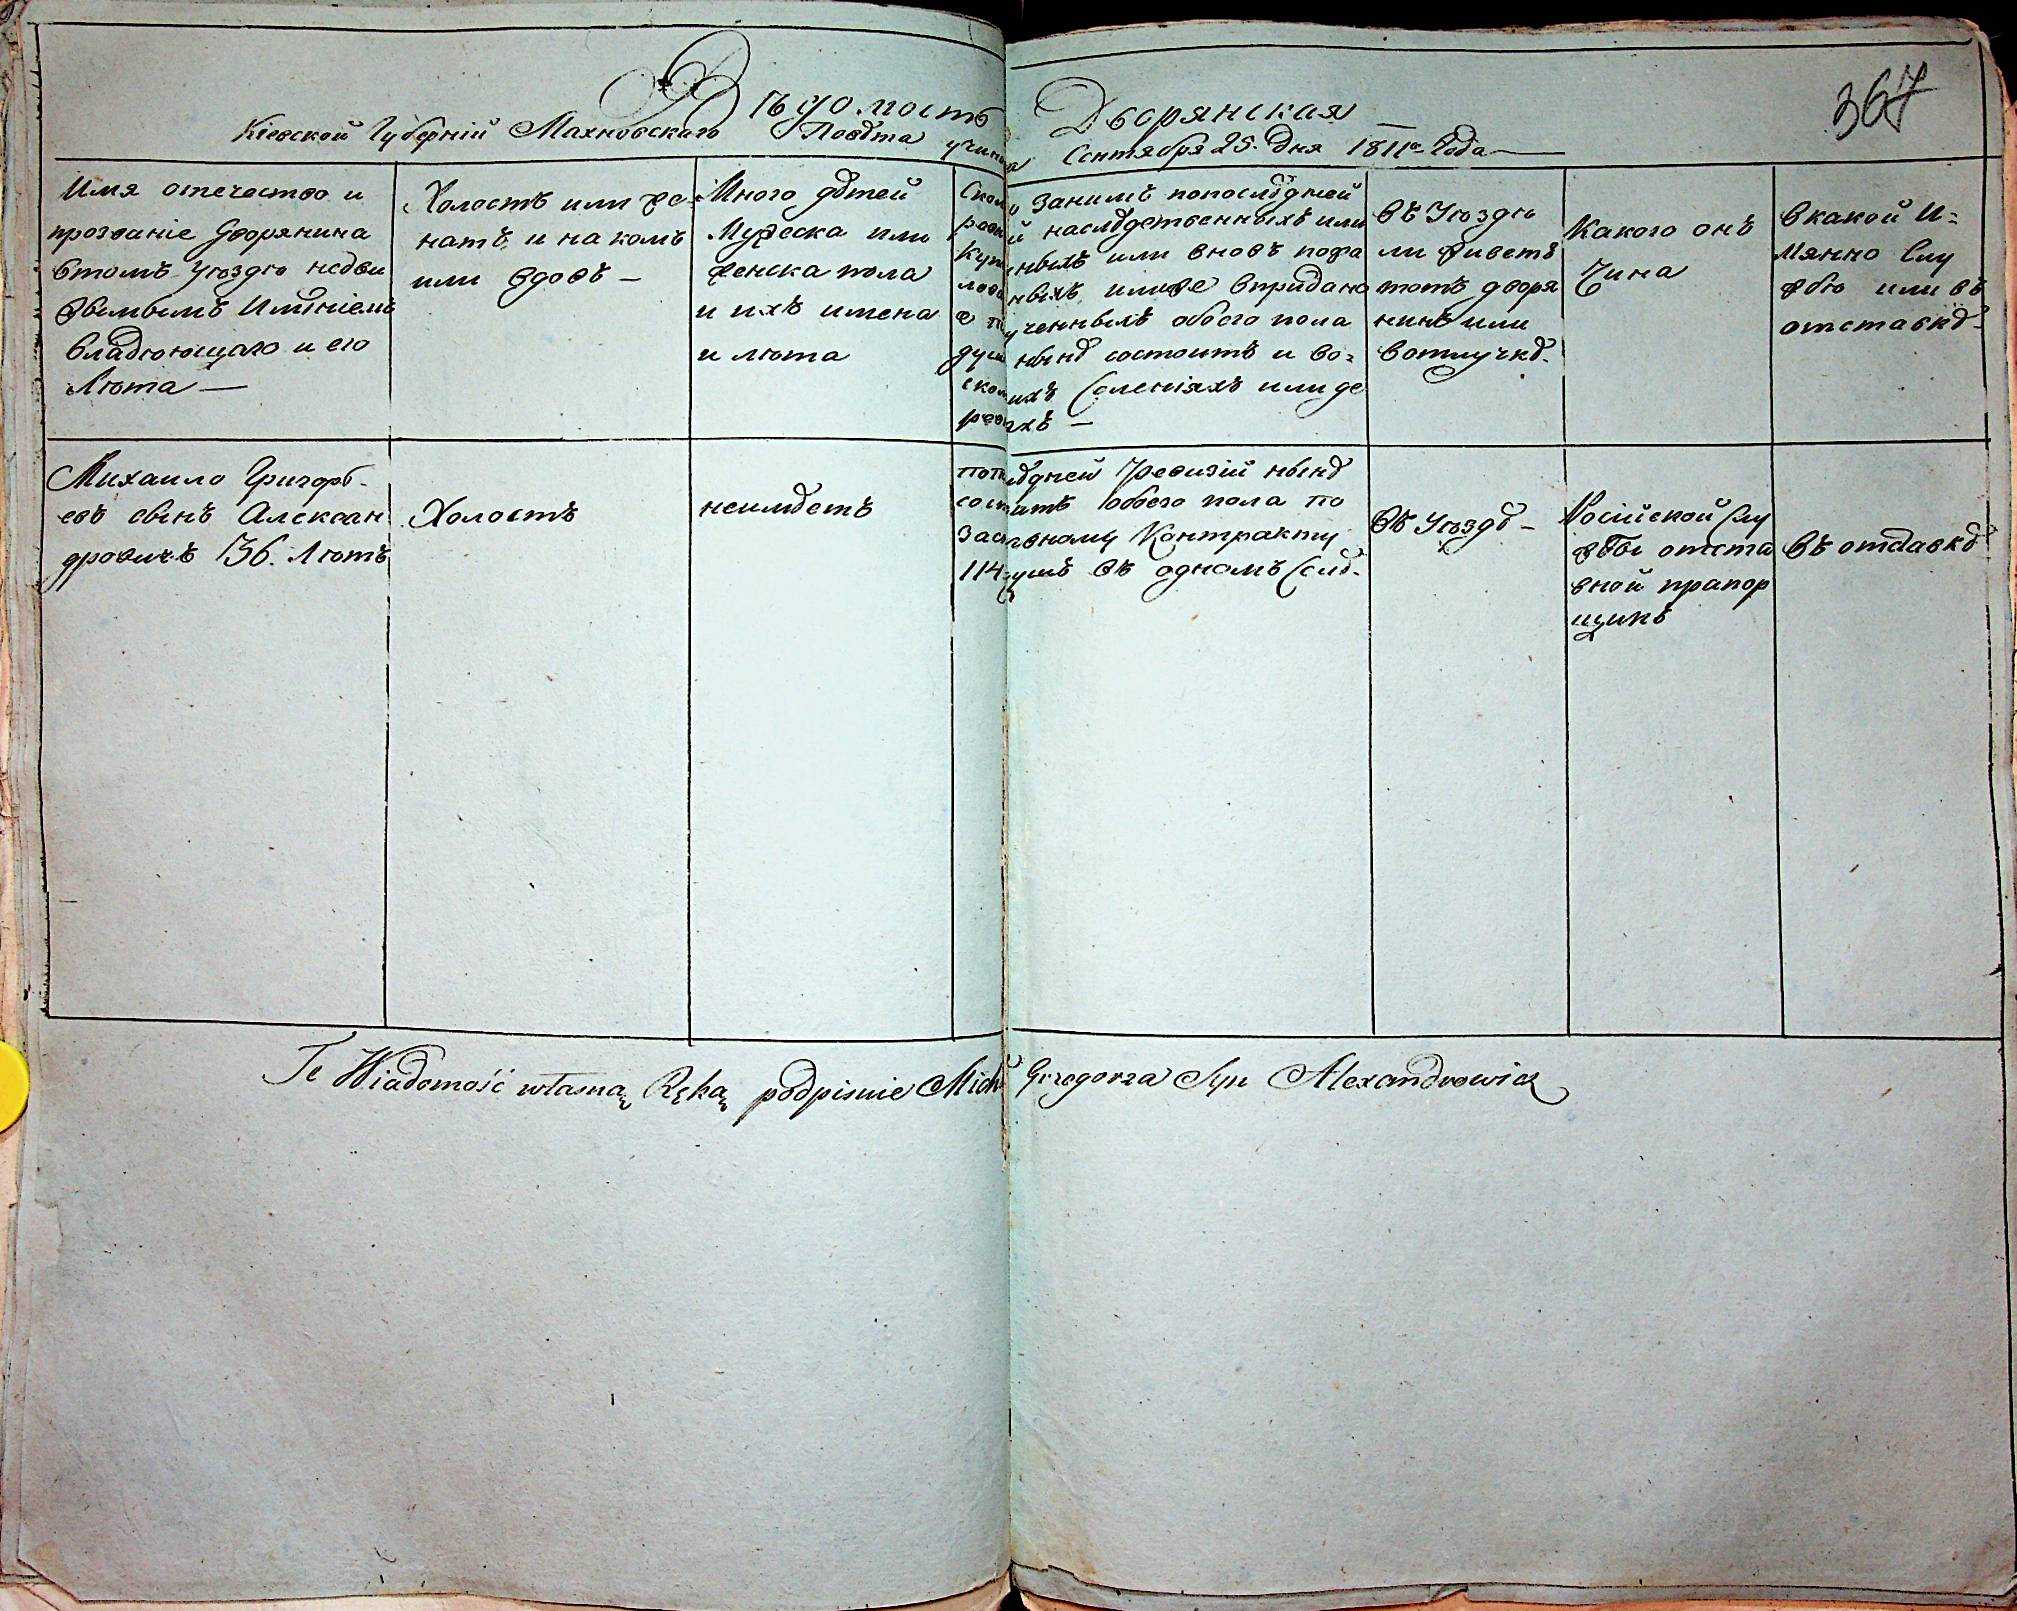 367
Вѣдомость Дворянская
Кіевской Губерніи Махновскаго Повѣта учинена Сентября 25. Дня 1811го Года
Имя отечество и
прозваніе дворянина
втомъ уѣздѣ недви
жымымъ Имѣніемъ
владѣющаго и его
Лѣта —
Холостъ или же-
натъ и на комъ
или вдовъ —
Много дѣтей
Мужеска или
женска пола
и ихъ имена
и лѣта
Занимъ попослѣдней
наслѣдственныхъ или
или вновъ пока
илиже впридано
ученныхъ обоего пола
нынѣ состоитъ и во-
ихъ Селеніяхъ или де
въ Уѣздѣ
ли живетъ
тотъ дворя
нинъ или
вотлучкѣ.
Какого онъ
Чина
вкакой И-
мянно Слу
жбѣ или въ
отставкѣ-
Михаило Григорь-
евъ сынъ Алексан
дровичъ 36. Лѣтъ
Холостъ
неимѣетъ
ревизіи нынѣ
обоего пола по
Контракту
114 душъ въ одномъ Селѣ.
въ Уѣздѣ —
Російской Слу
жбы отста
вной прапор
щикъ
въ отставкѣ
Te Wiadomość własną Ręką podpisuie Mich Grzegorza Syn Alexandrowicz